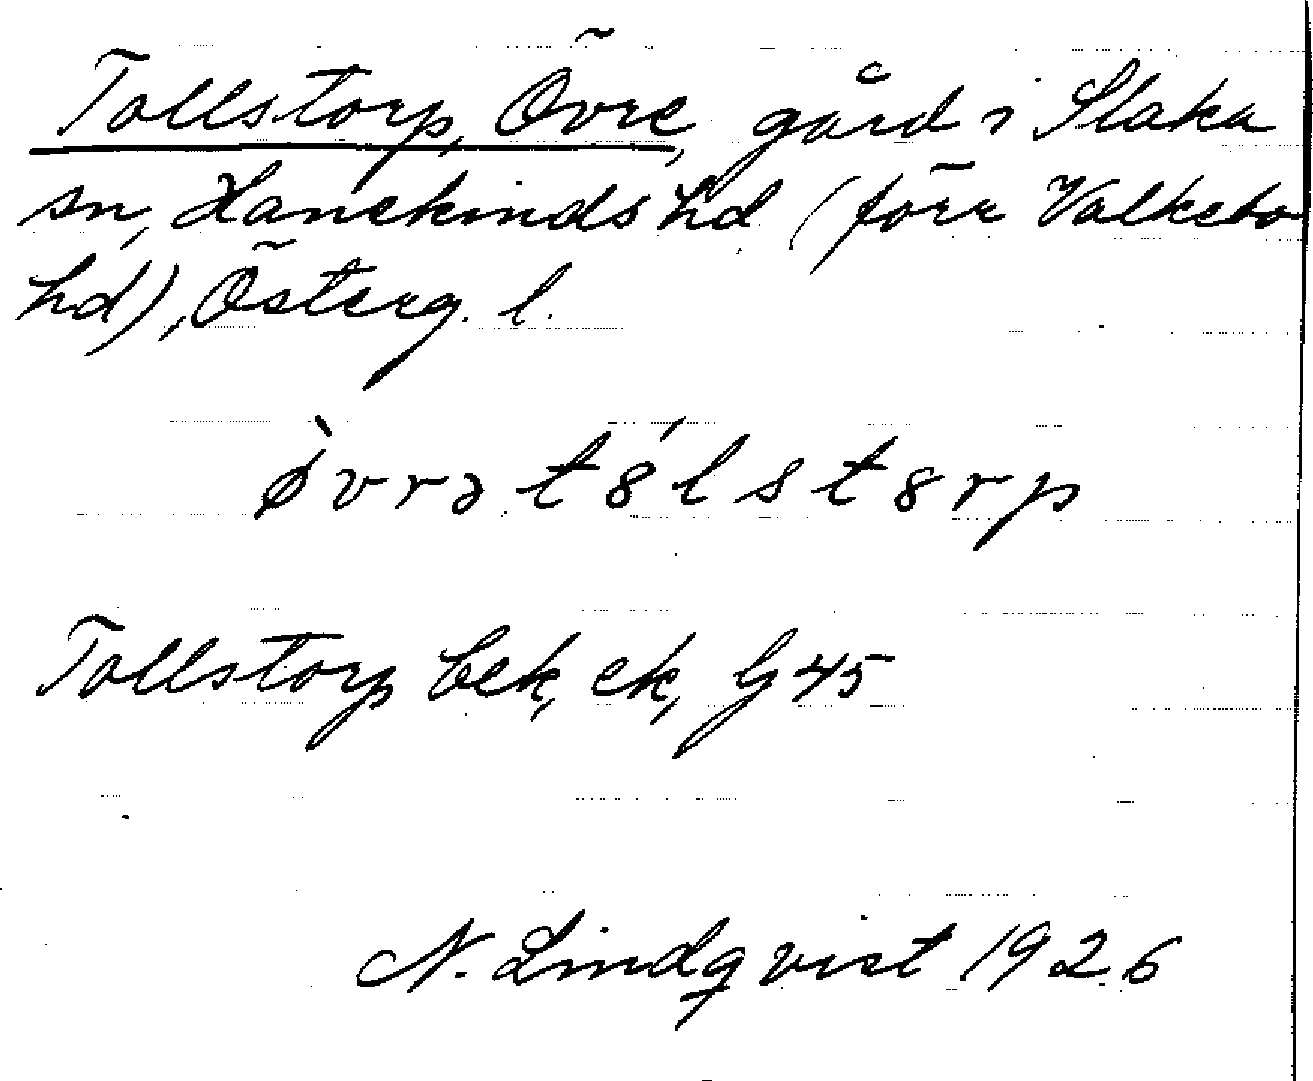 Tollstorp, Övre, gård i Slaka
sn, Hanekinds hd (förr Valkebo
hd), Österg. l.
ø̀vrə tȣ́lstȣrp
Tollstorp bek, ek, G 45
N. Lindqvist 1926